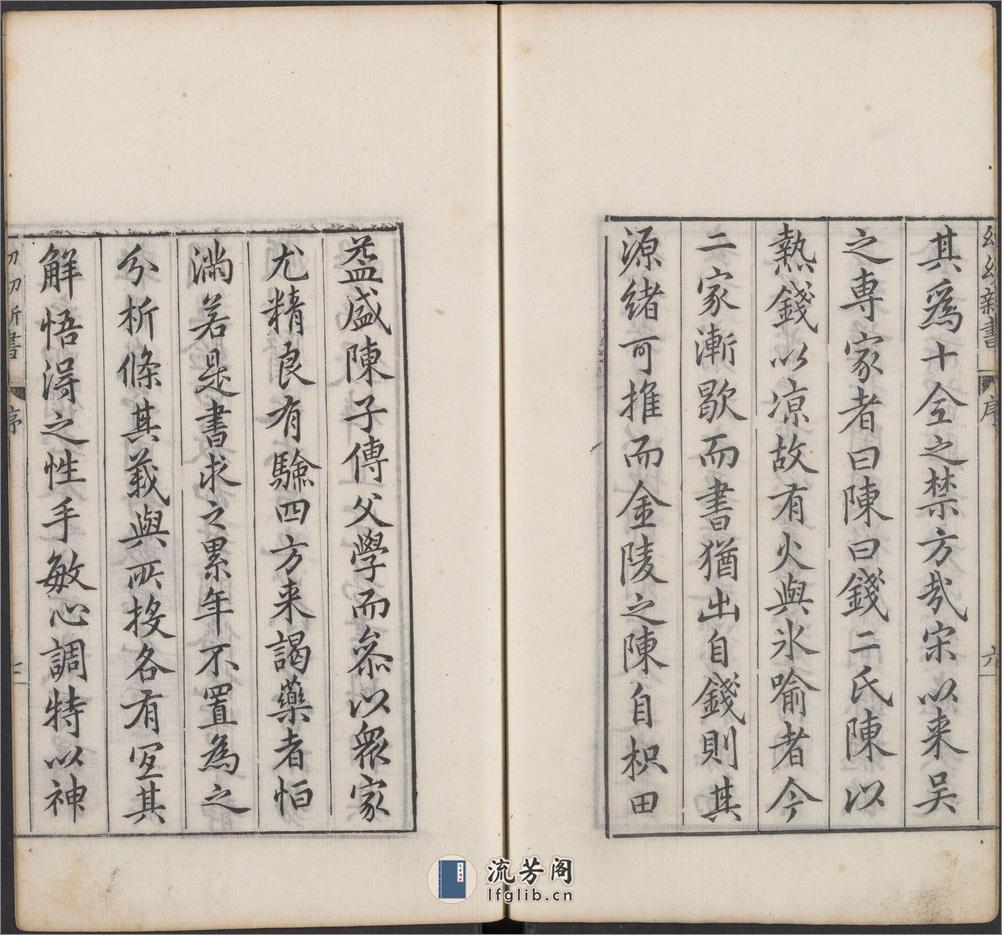 幼幼新書 序 六
其爲十全之禁方哉宋以来吴
之専家者曰陳曰錢二氏陳以
熱錢以凉故有火與氷喻者今
二家漸歇而書猶出自錢則其
源緒可推而金陵之陳自枳田
益盛陳子傳父學而叅以衆家
尤精良有驗四方来謁藥者怕
滿若是書求之累年不置為之
分析條其義與所投各有宐其
解悟得之性手敏心調特以神
幼幼新書 序
流芳阁
lfglib.cn